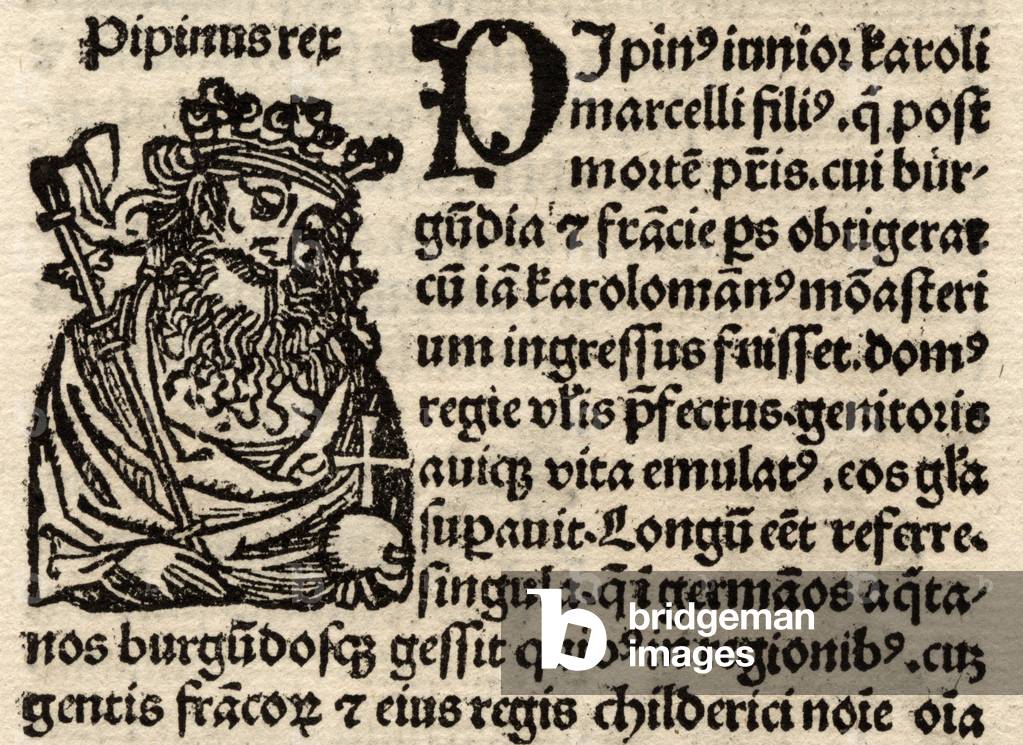 Pipinus rex
PIpinꝰ iunior karoli
marcelli filiꝰ .q̃ post
mortē pr̄is.cui bur-
gūdia ⁊ frācie ꝑs obtigerat
cū iā karolomānꝰ mōasteri
um ingressus fuisset.domꝰ
regie vl̄is p̄fectus.genitoris
auiqꝫ vita emulatꝰ .eos gl̄a
suꝑauit.Longū eēt referre.
singula q̃ ī germāos aq̄ta-
nos burgūdosqꝫ gessit .cuꝫ
gentis frācoꝝ ⁊ eius regis childerici nōie oīa
bridgeman
images